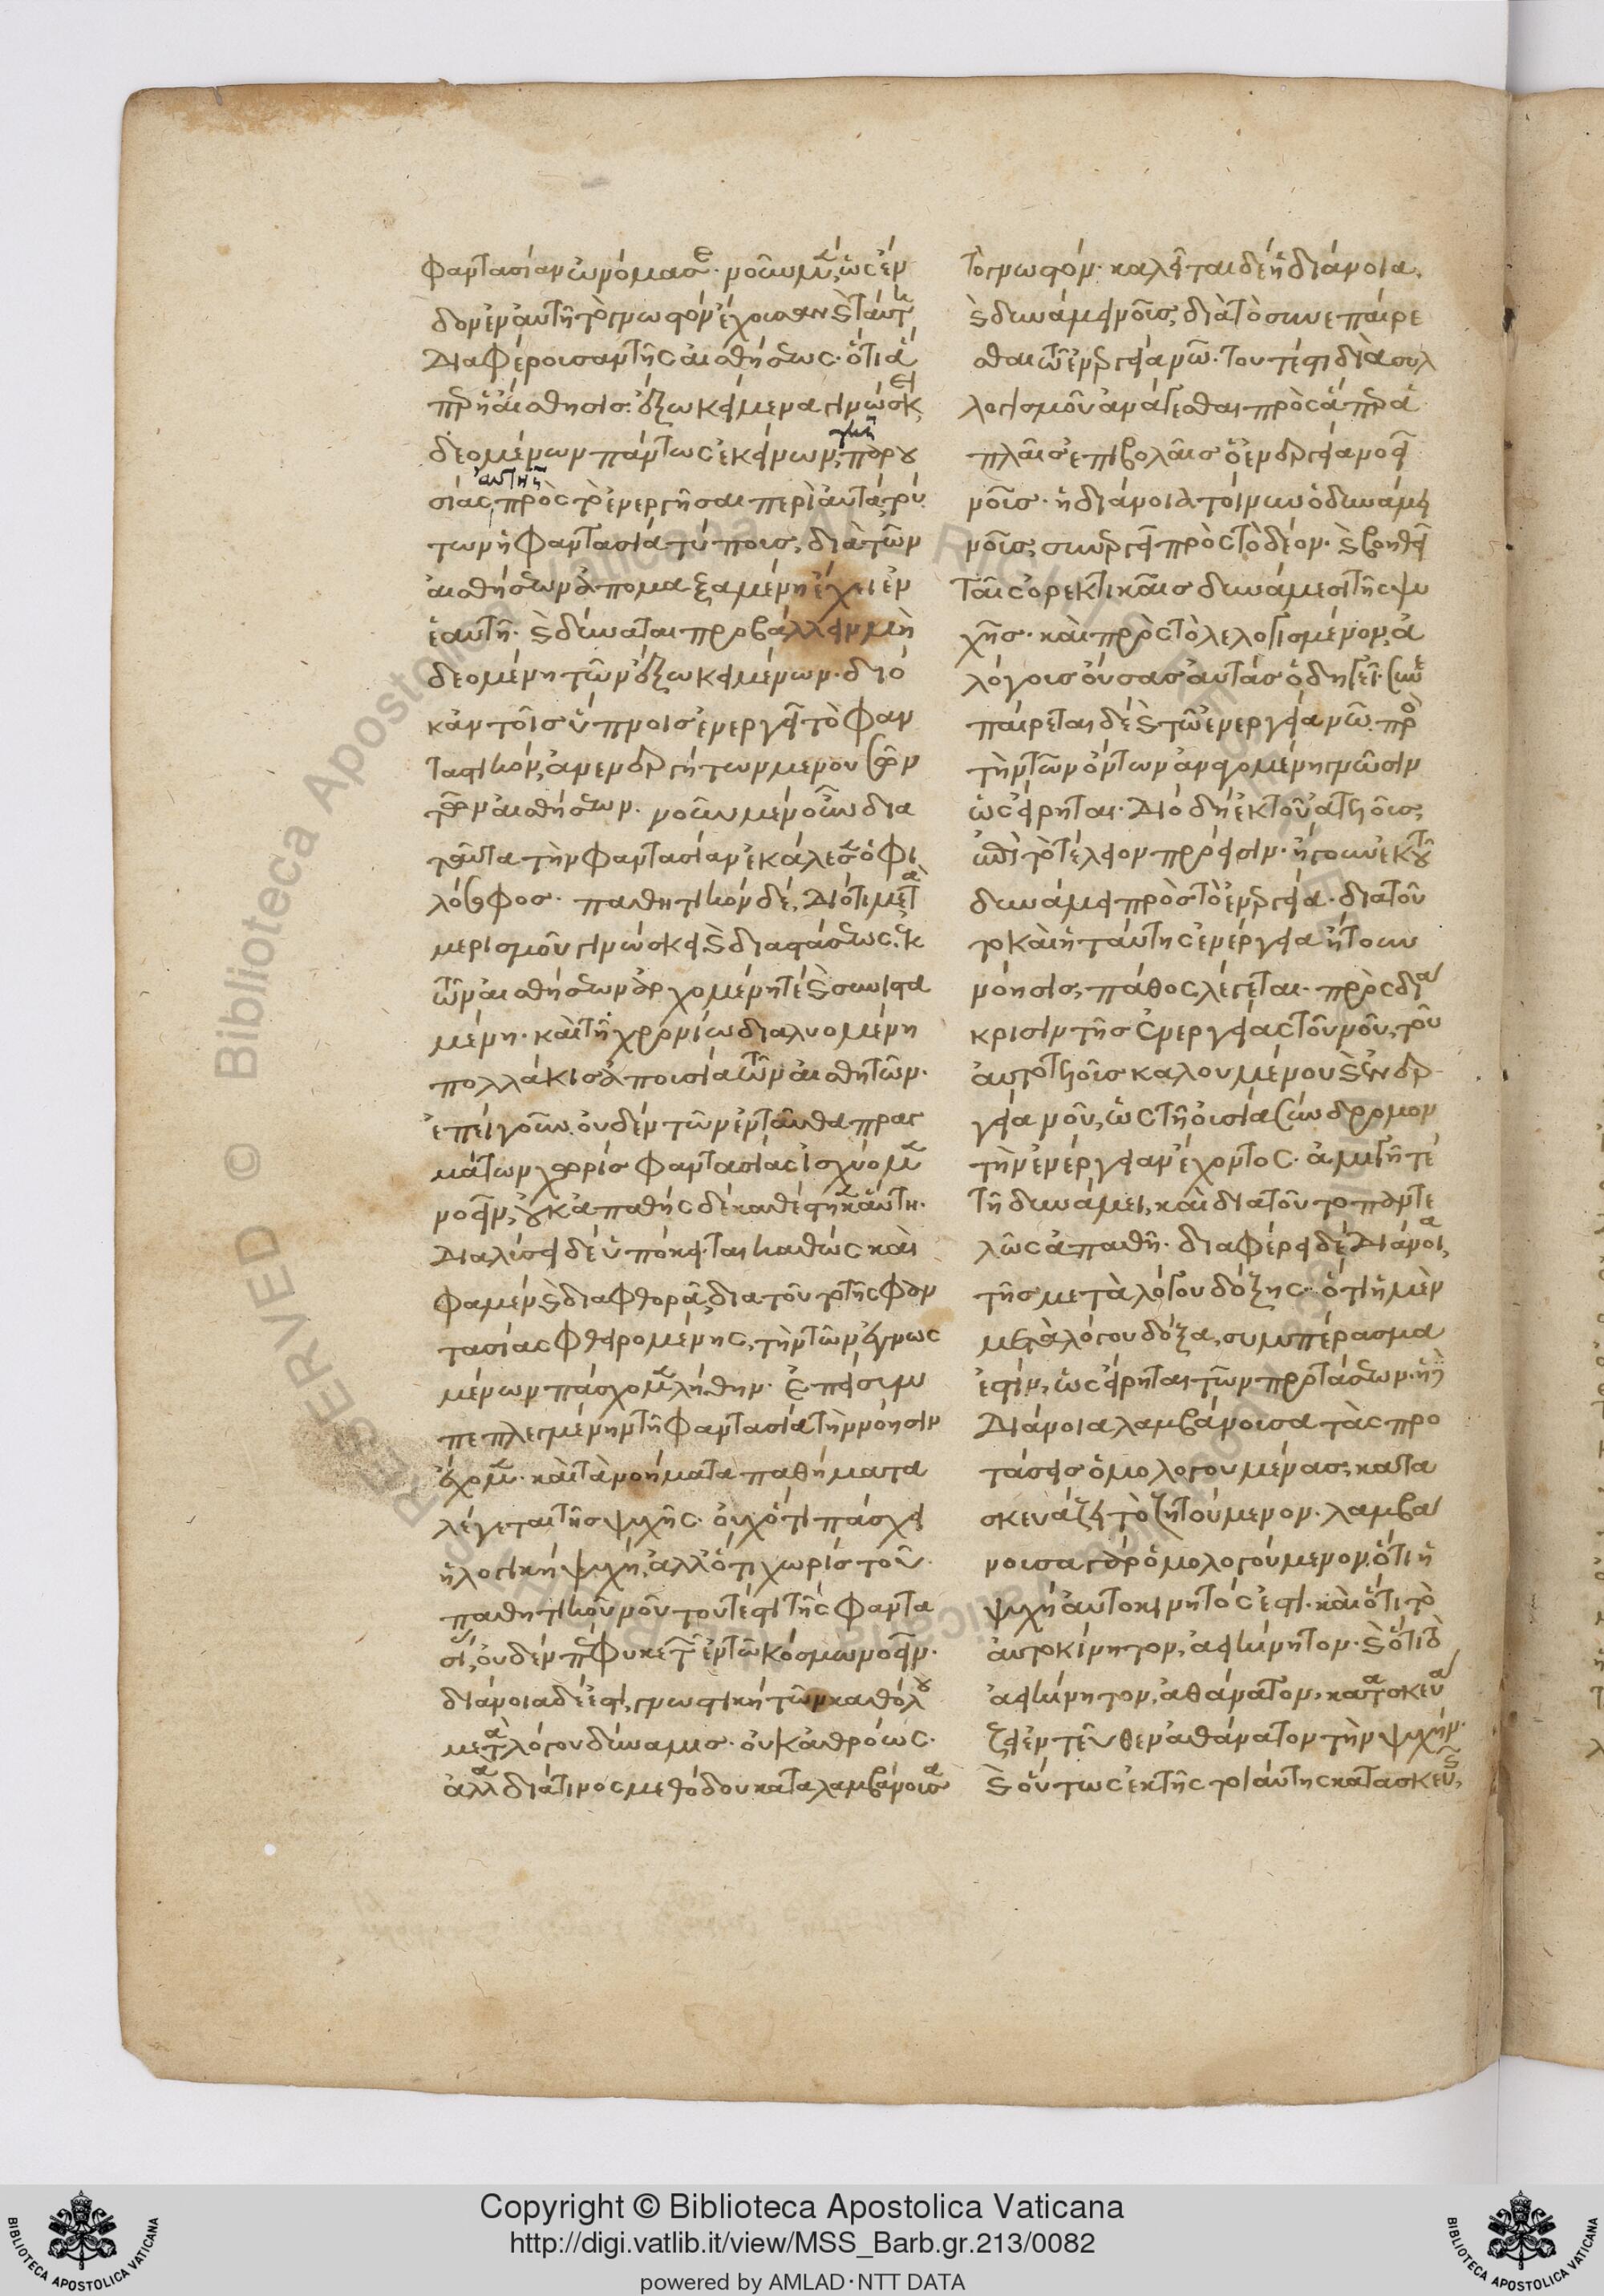 φαντασίαν ὠνόμασε· νοῦν μὲν, ὡς ἔν
δον ἐν αὐτῆ τὸ γνωστὸν ἔχουσαν καὶ ταύτη
διαφέρουσαν τῆς αἰσθήσεως· ὅτι ἅ
περ ἡ αἴσθησις ἔξω κείμενα γινώσκει
δεομένων πάντως ἐκείνων παρου
σίας πρὸς τὸ ἐνεργῆσαι περὶ αὐτὰ· τού
των ἡ φαντασία τύπους διὰ τῶν
αἰσθήσεων ἀπομαξαμένη ἔχει ἐν
ἑαυτῆ· καὶ δύναται προβάλλειν μὴ
δεομένη τῶν ἔξω κειμένων· διὸ
κἀν τοῖς ὕπνοις ἐνεργεῖ τὸ φαν
ταστικὸν, ἀνενεργήτων μενουσῶν
τῶν αἰσθήσεων. νοῦν μὲν οὖν δια
ταῦτα τὴν φαντασίαν ἐκάλεσεν ὁ φι
λόσοφος· παθητικὸν δὲ, διότι μετὰ
μερισμοῦ γινώσκει καὶ διαστάσεως, ἐκ
τῶν αἰσθήσεων ἀρχομένη τὲ καὶ συνιστα
μένη· καὶ τῆ χρονίω διαλυομένη
πολλάκις ἀπουσία τῶν αἰσθητῶν·
ἐπεὶ γοῦν οὐδὲν τῶν ἐνταῦθα πραγ
μάτων χωρὶς φαντασίας ἰσχύομεν
νοεῖν, οὐκ ἀπαθὴς δὲ καθέστηκεν αὕτη·
διαλύσει δὲ ὑπόκειται καθὼς καὶ
φαμὲν καὶ διαφθορᾶ, δια τοῦτο τῆς φαν
τασίας φθειρομένης, τὴν τῶν ἐγνωσ
μένων πάσχομεν λήθην· ἐπεὶ συμ
πεπλεγμένην τῆ φαντασία τὴν νόησιν
ἔχομεν· καὶ τὰ νοήματα παθήματα
λέγεται τῆς ψυχῆς· οὐχ ὅτι πάσχει
ἡ λογικὴ ψυχή, ἀλλ' ὅτι χωρὶς τοῦ
παθητικοῦ νοῦ τουτέστι τῆς φαντα
σίας, οὐδὲν πέφυκε τῶν ἐν τῶ κόσμω νοεῖν·
διάνοια δὲ ἐστι, γνωστικὴ τῶν καθόλου
μετὰ λόγου δύναμις· οὐκ ἀθρόως·
ἀλλὰ διά τινος μεθόδου καταλαμβάνουσα
τὸ γνωστόν· καλεῖται δὲ ἡ διάνοια,
καὶ δυνάμει νοῦς, διὰ τὸ συνεπαίρε
σθαι τῶ ἐνεργεία νῶ· τουτέστι διὰ συλ
λογισμοῦ ἀνάγεσθαι πρὸς ἅπερ ἁ
πλαῖς ἐπιβολαῖς ὁ ἐνεργεία νοεῖ
νοῦς· ἡ διάνοια τοίνυν ὁ δυνάμει
νοῦς, συνεργεῖ πρὸς τὸ δέον· καὶ βοηθεῖ
ταῖς ὀρεκτικαῖς δυνάμεσι τῆς ψυ
χῆς· καὶ πρὸς τὸ λελογισμένον, ἀ
λόγους οὔσας αὐτὰς ὁδηγεῖ· συνε
παίρεται δὲ καὶ τῶ ἐνεργεία νῶ πρὸς
τὴν τῶν ὄντων ἀνηγομένη γνῶσιν
ὡς εἴρηται· διὸ δὴ ἐκ τοῦ ἀτελοῦς,
ἐπὶ τὸ τέλειον πρόεισιν· ἤγουν ἐκ τοῦ
δυνάμει πρὸς τὸ ἐνεργεία· διατοῦ
το καὶ ἡ ταύτης ἐνέργεια ἤγουν
νόησις, πάθος λέγεται· πρὸς διά
κρισιν τῆς ἐνεργείας τοῦ νοῦ, τοῦ
αὐτοτελοῦς καλουμένου καὶ ἐνερ
γεία νοῦ, ὡς τῆ οὐσία σύνδρομον
τὴν ἐνέργειαν ἔχοντος· ἀμιγῆ τέ
τῆ δυνάμει, καὶ διατοῦτο παντε
λῶς ἀπαθῆ· διαφέρει δὲ διάνοια
τῆς μετὰ λόγου δόξης· ὅτι ἡ μὲν
μετὰ λόγου δόξα, συμπέρασμα
ἐστιν, ὡς εἴρηται τῶν προτάσεων· ἡ δὲ
διάνοια λαμβάνουσα τὰς προ
τάσεις ὁμολογουμένας, κατα
σκευάζει τὸ ζητούμενον· λαμβά
νουσα γὰρ ὁμολογούμενον, ὅτι ἡ
ψυχὴ αὐτοκίνητός ἐστι· καὶ ὅτι τὸ
αὐτοκίνητον, ἀεικίνητον· καὶ ὅτι τὸ
ἀεικίνητον, ἀθάνατον, κατασκευά
ζει ἐντεῦθεν ἀθάνατον τὴν ψυχήν·
καὶ οὕτως ἐκ τῆς τοιαύτης κατασκευῆς,
Copyright © Biblioteca Apostolica Vaticana
http://digi.vatlib.it/view/MSS_Barb.gr.213/0082
powered by AMLAD·NTT DATA